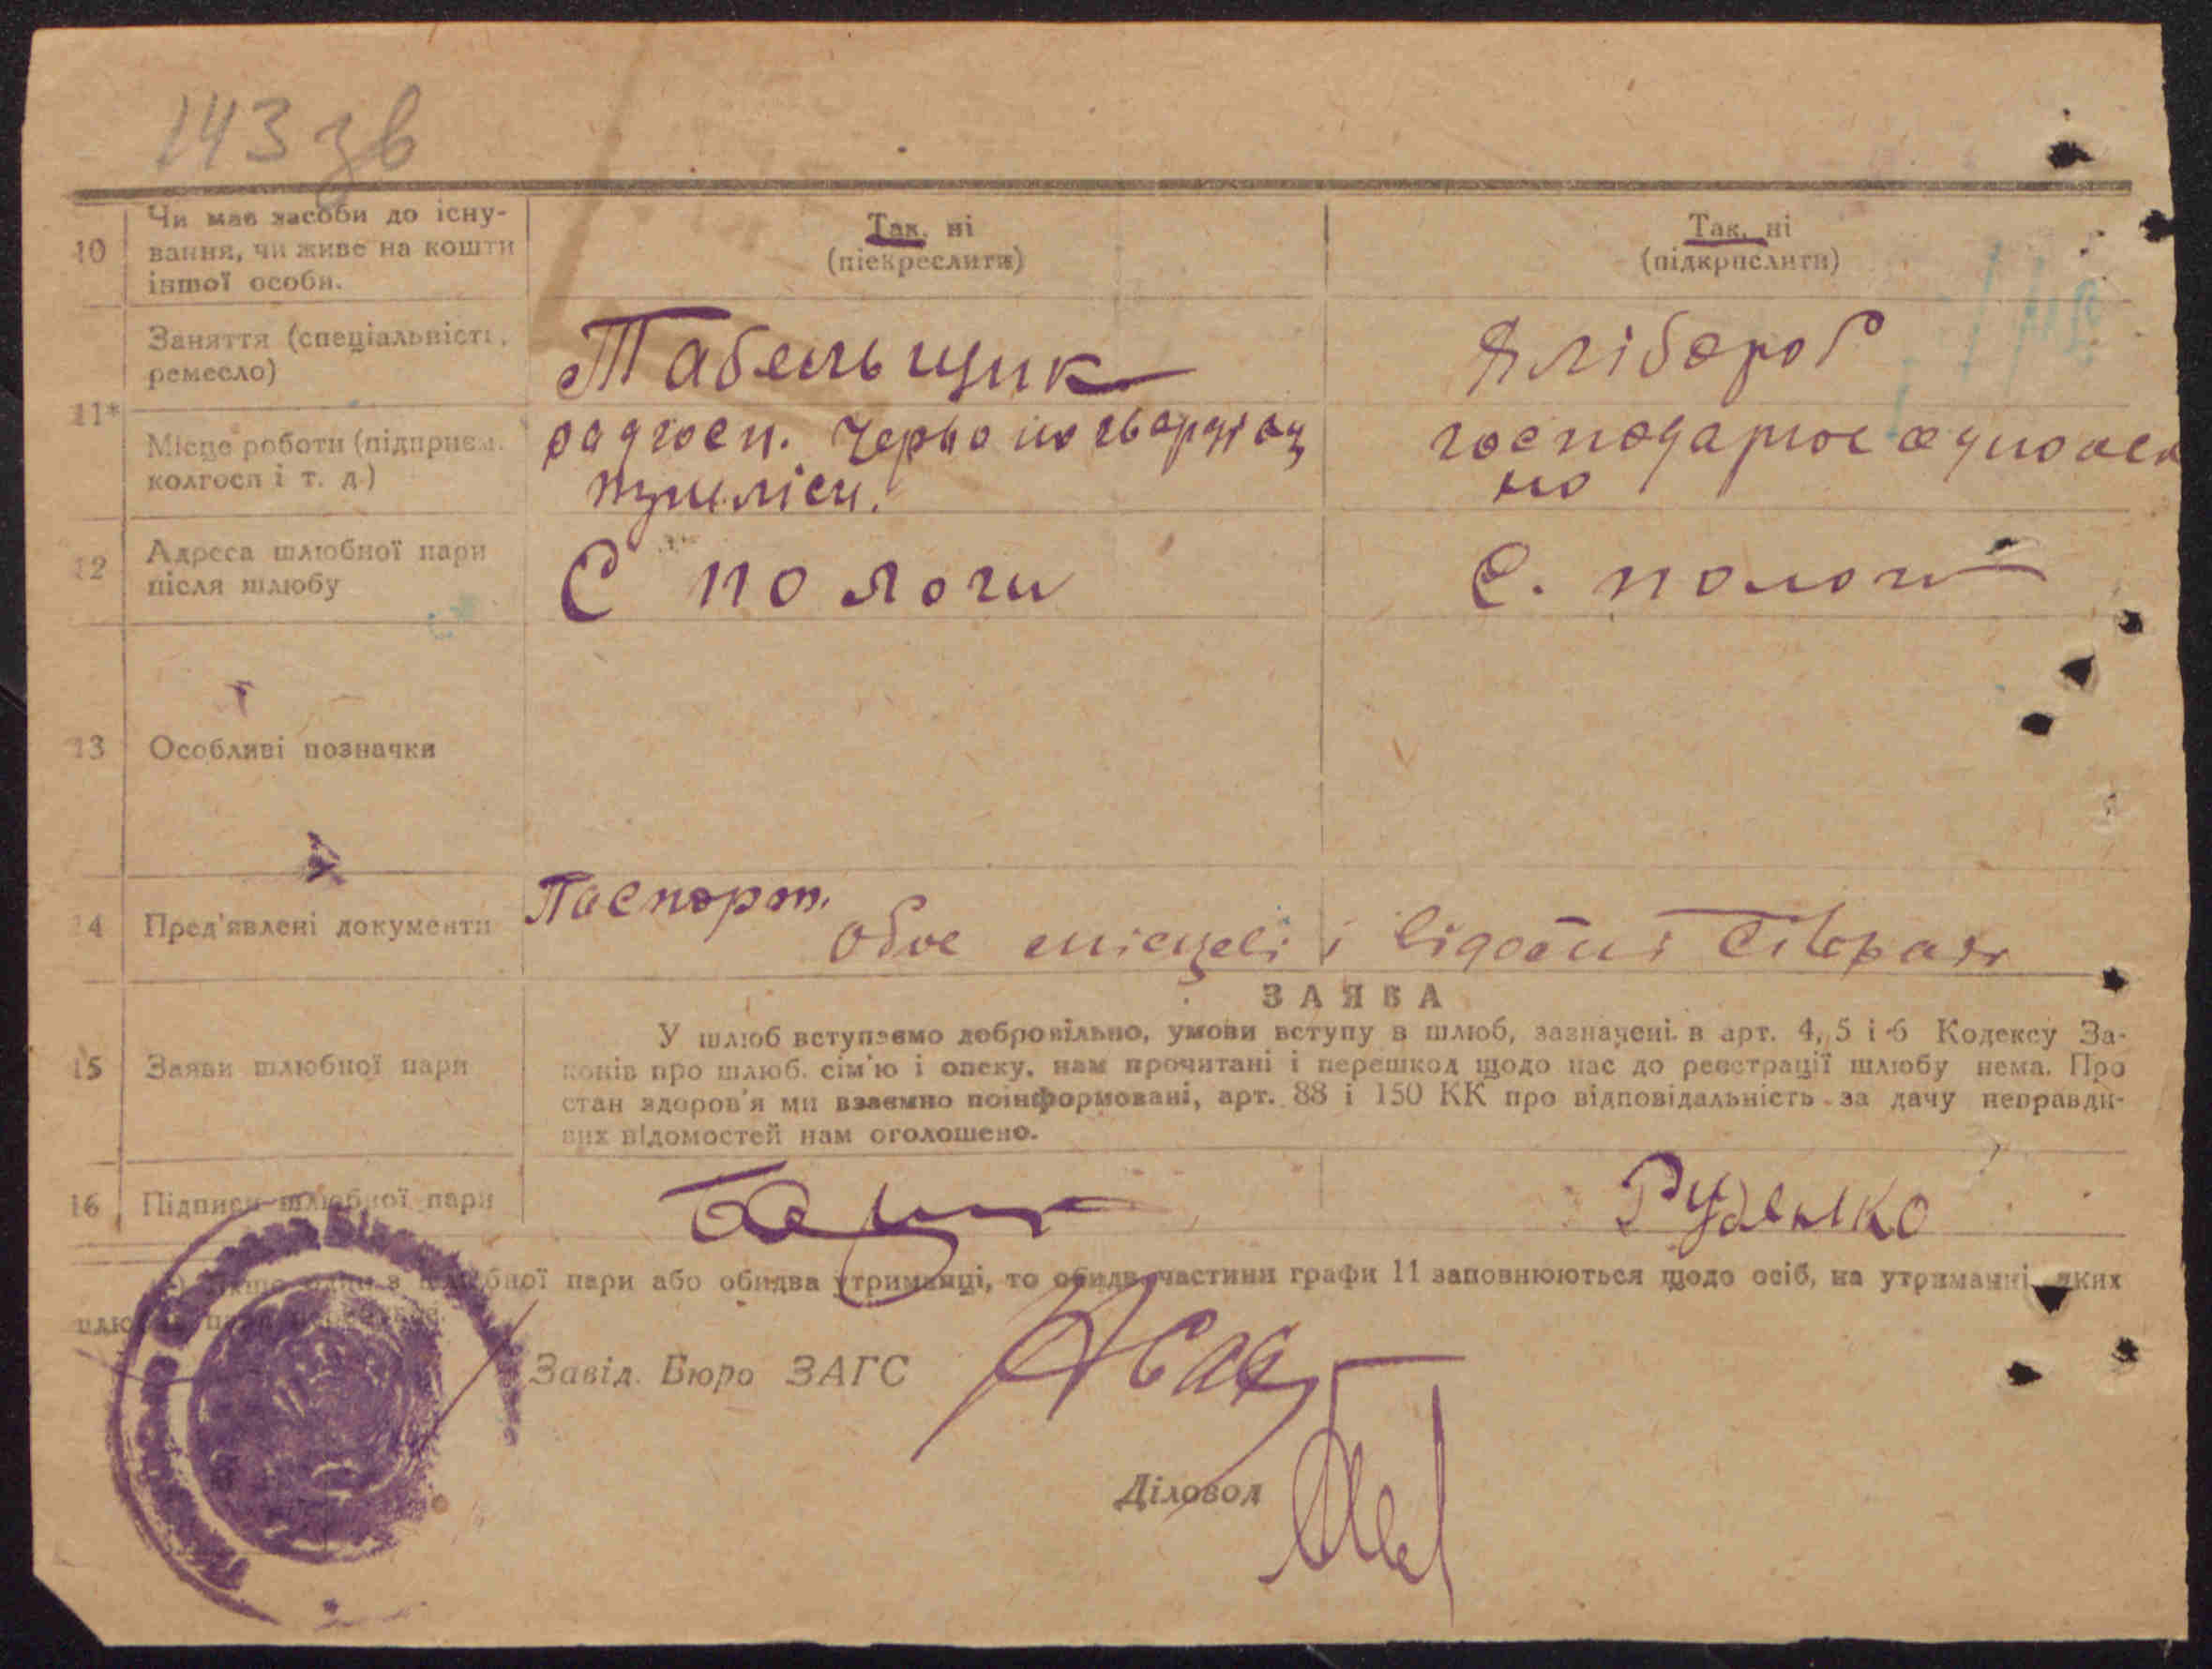 143 зв
10 Чи має засоби до існу-
вання, чи живе на кошти
іншої особи.
Так, ні
(піекреслити)
Так, ні
(підкрпслити)
11*
Заняття (спеціальність,
ремесло)
Табельщик
Хлібороб
Місце роботи (підприєм.
колгосп і т. д.)
радгосп. Червоногвардієц
господарює одноосі
но
12 Адреса шлюбної пари
після шлюбу
С пологи
С. пологи
13 Особливі позначки
14 Пред'явлені документи
Паспорт.
Обоє місцеві і відомі
15 Заяви шлюбної пари
ЗАЯВА
У шлюб вступаємо добровільно, умови вступу в шлюб, зазначені в арт. 4, 5 і 6 Кодексу За-
конів про шлюб, сім'ю і опеку, нам прочитані і перешкод щодо нас до реєстрації шлюбу нема. Про
стан здоров'я ми взаємно поінформовані, арт. 88 і 150 КК про відповідальність за дачу неправди-
вих відомостей нам оголошено.
16 Підписи шлюбної пари
Руденко
один з шлюбної пари або обидва утриманці, то обидві частини графи 11 заповнюються щодо осіб, на утриманні яких
Завід. Бюро ЗАГС
Діловод